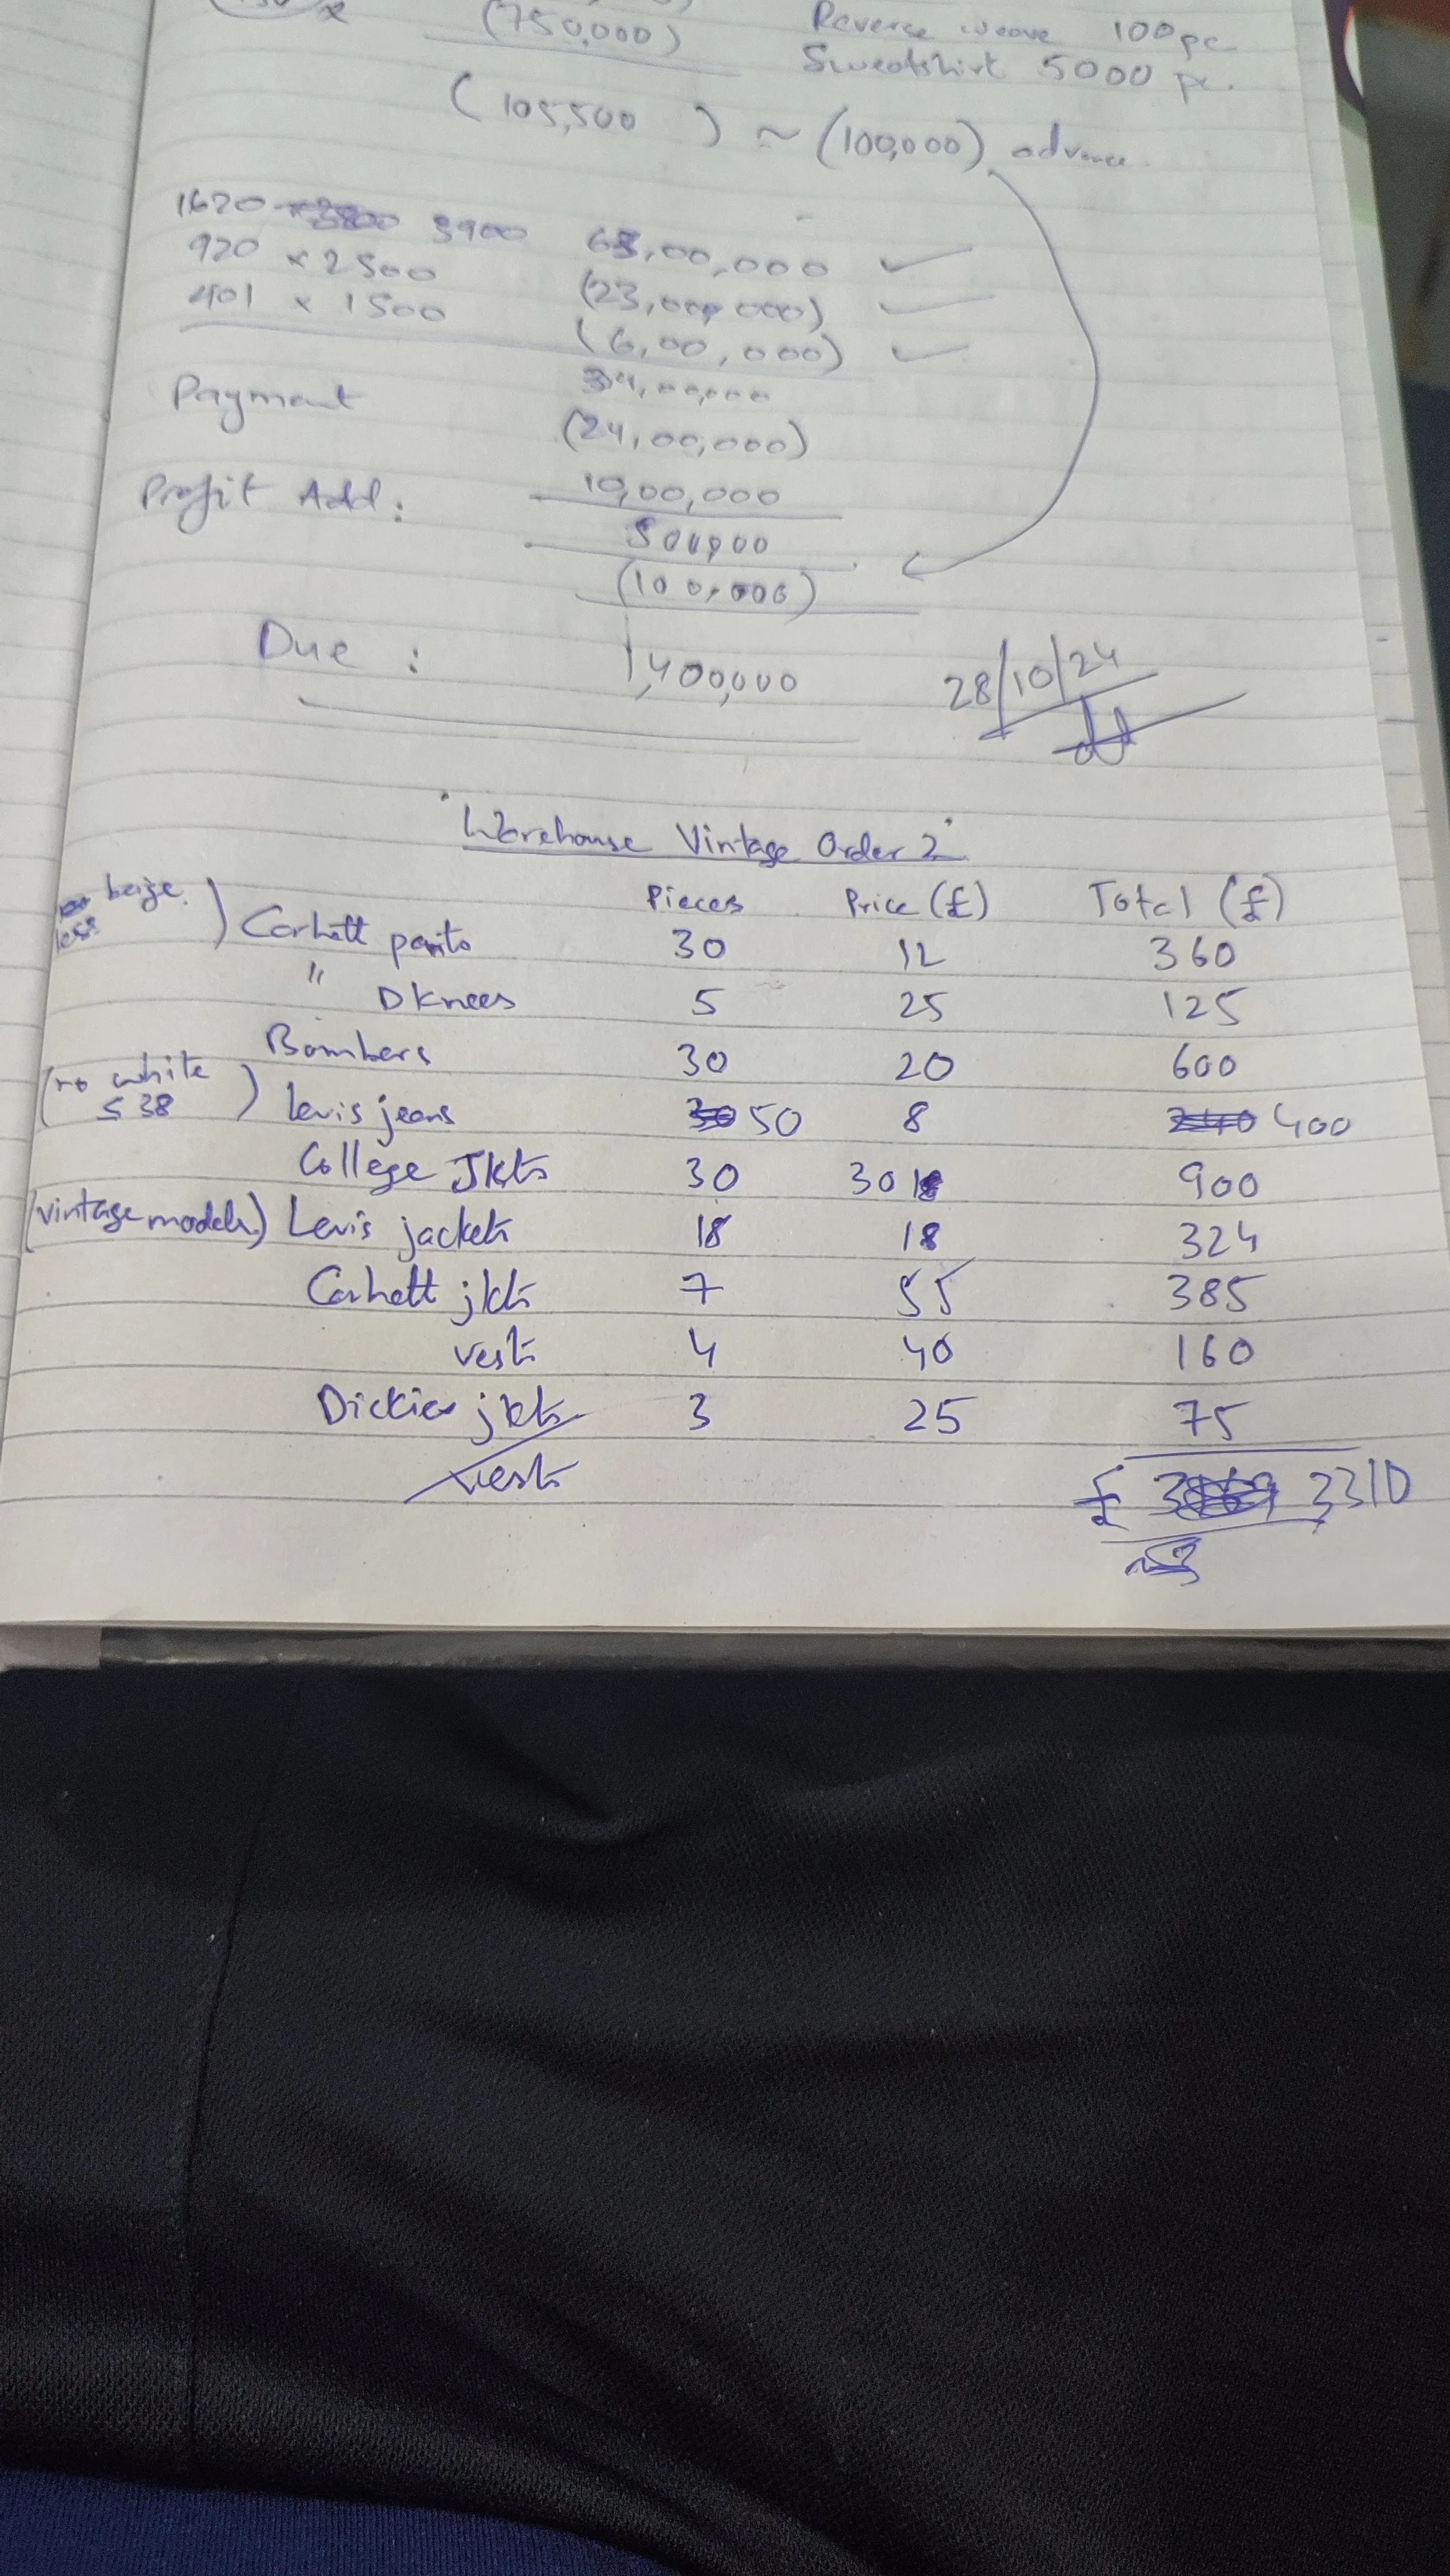 (750,000)
Reverse weave 100 pc
Sweatshirt 5000 pc.
(105,500) ~ (100,000) advance
1620 3900 63,00,000
920 x 2500 (23,00,000)
401 x 1500 (6,00,000)
34,00,000
Payment (24,00,000)
10,00,000
Profit Add: 500,000
(100,000)
Due : 1,400,000
28/10/24
"Warehouse Vintage Order 2"
Pieces Price (£) Total (£)
beige less) Carhatt pants 30 12 360
" D Knees 5 25 125
Bombers 30 20 600
(no white ≤ 38) Levis jeans 50 8 400
College Jkts 30 30 900
(vintage models) Levis jackets 18 18 324
Carhatt jkts 7 55 385
vests 4 40 160
Dickies jkts 3 25 75
vests
£ 3310